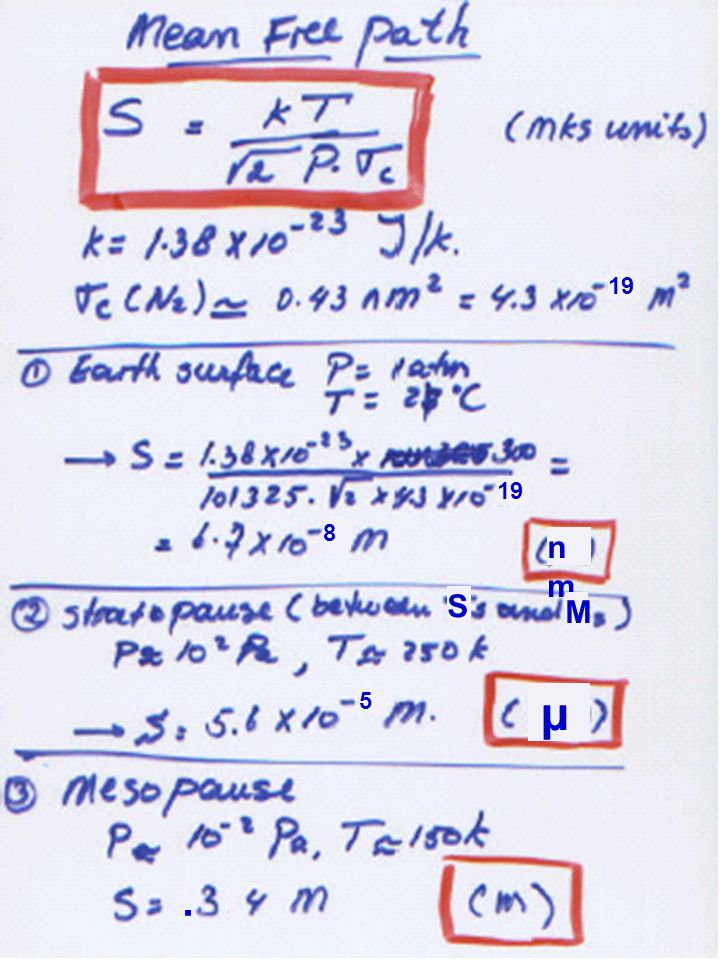 Mean Free path
S = kT / √2 P. σc (mks units)
k = 1.38 x10⁻²³ J/k.
σc (N₂) ≃ 0.43 nm² = 4.3 x10⁻¹⁹ m²
① Earth surface P = 1atm
T = 27 °C
→ S = 1.38 x10⁻²³ x 300 / 101325. √2 x 4.3 x10⁻¹⁹ =
= 6.7 x 10⁻⁸ m (nm)
② stratopause (between S's and Ms)
P≈ 10² Pa, T≈ 250 k
→ S = 5.6 x10⁻⁵ m. (μ)
③ Mesopause
P≈ 10⁻² Pa, T≈ 150k
S = .34 m (m)